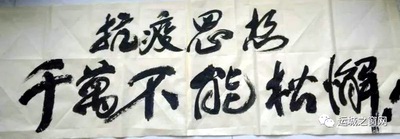 抗疫思想
千萬不能松懈
运城之窗网